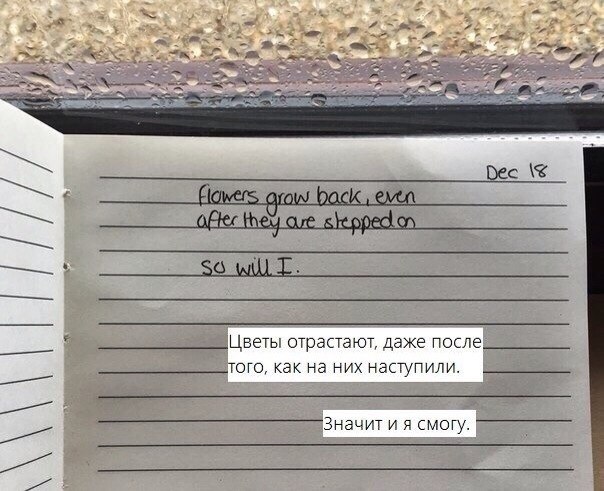 Dec 18
flowers grow back, even
after they are stepped on
so will I.
Цветы отрастают, даже после
того, как на них наступили.
Значит и я смогу.